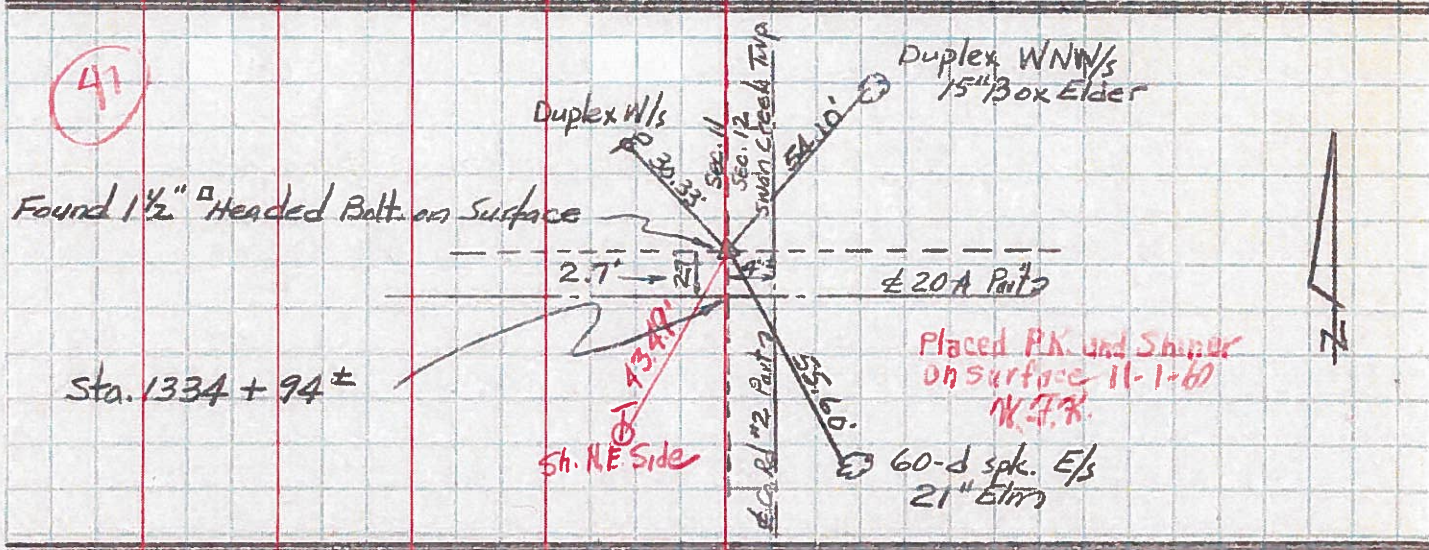 41
Duplex WNW/s
15" Box Elder
Duplex W/s
30.33'
Sec. 11
Sec. 12
Swan Creek Twp
54.10'
Found 1 1/2" □ Headed Bolt on Surface
2.7'
27
4'
℄ 20-A Part 2
43.49'
Sta. 1334 + 94 ±
℄ Co. Rd #2 Part 2
55.60'
Placed P.K. and Shiner
on surface 11-1-60
W.F.K.
Sh. N.E. Side
60-d spk. E/s
21" Elm
N